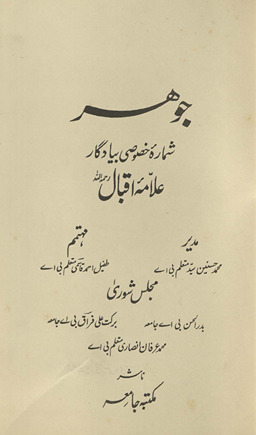 جوهر
شمارۂ خصوصی بیادگار
علامہ اقبال رحمۃ اللہ
مدیر مہتمم
محمد حسنین سید متعلم بی اے طفیل احمد قاسمی متعلم بی اے
مجلس شوریٰ
بدر الحسن بی اے جامعہ برکت علی فراق بی اے جامعہ
محمد عرفان انصاری متعلم بی اے
ناشر
مکتبہ جامعہ